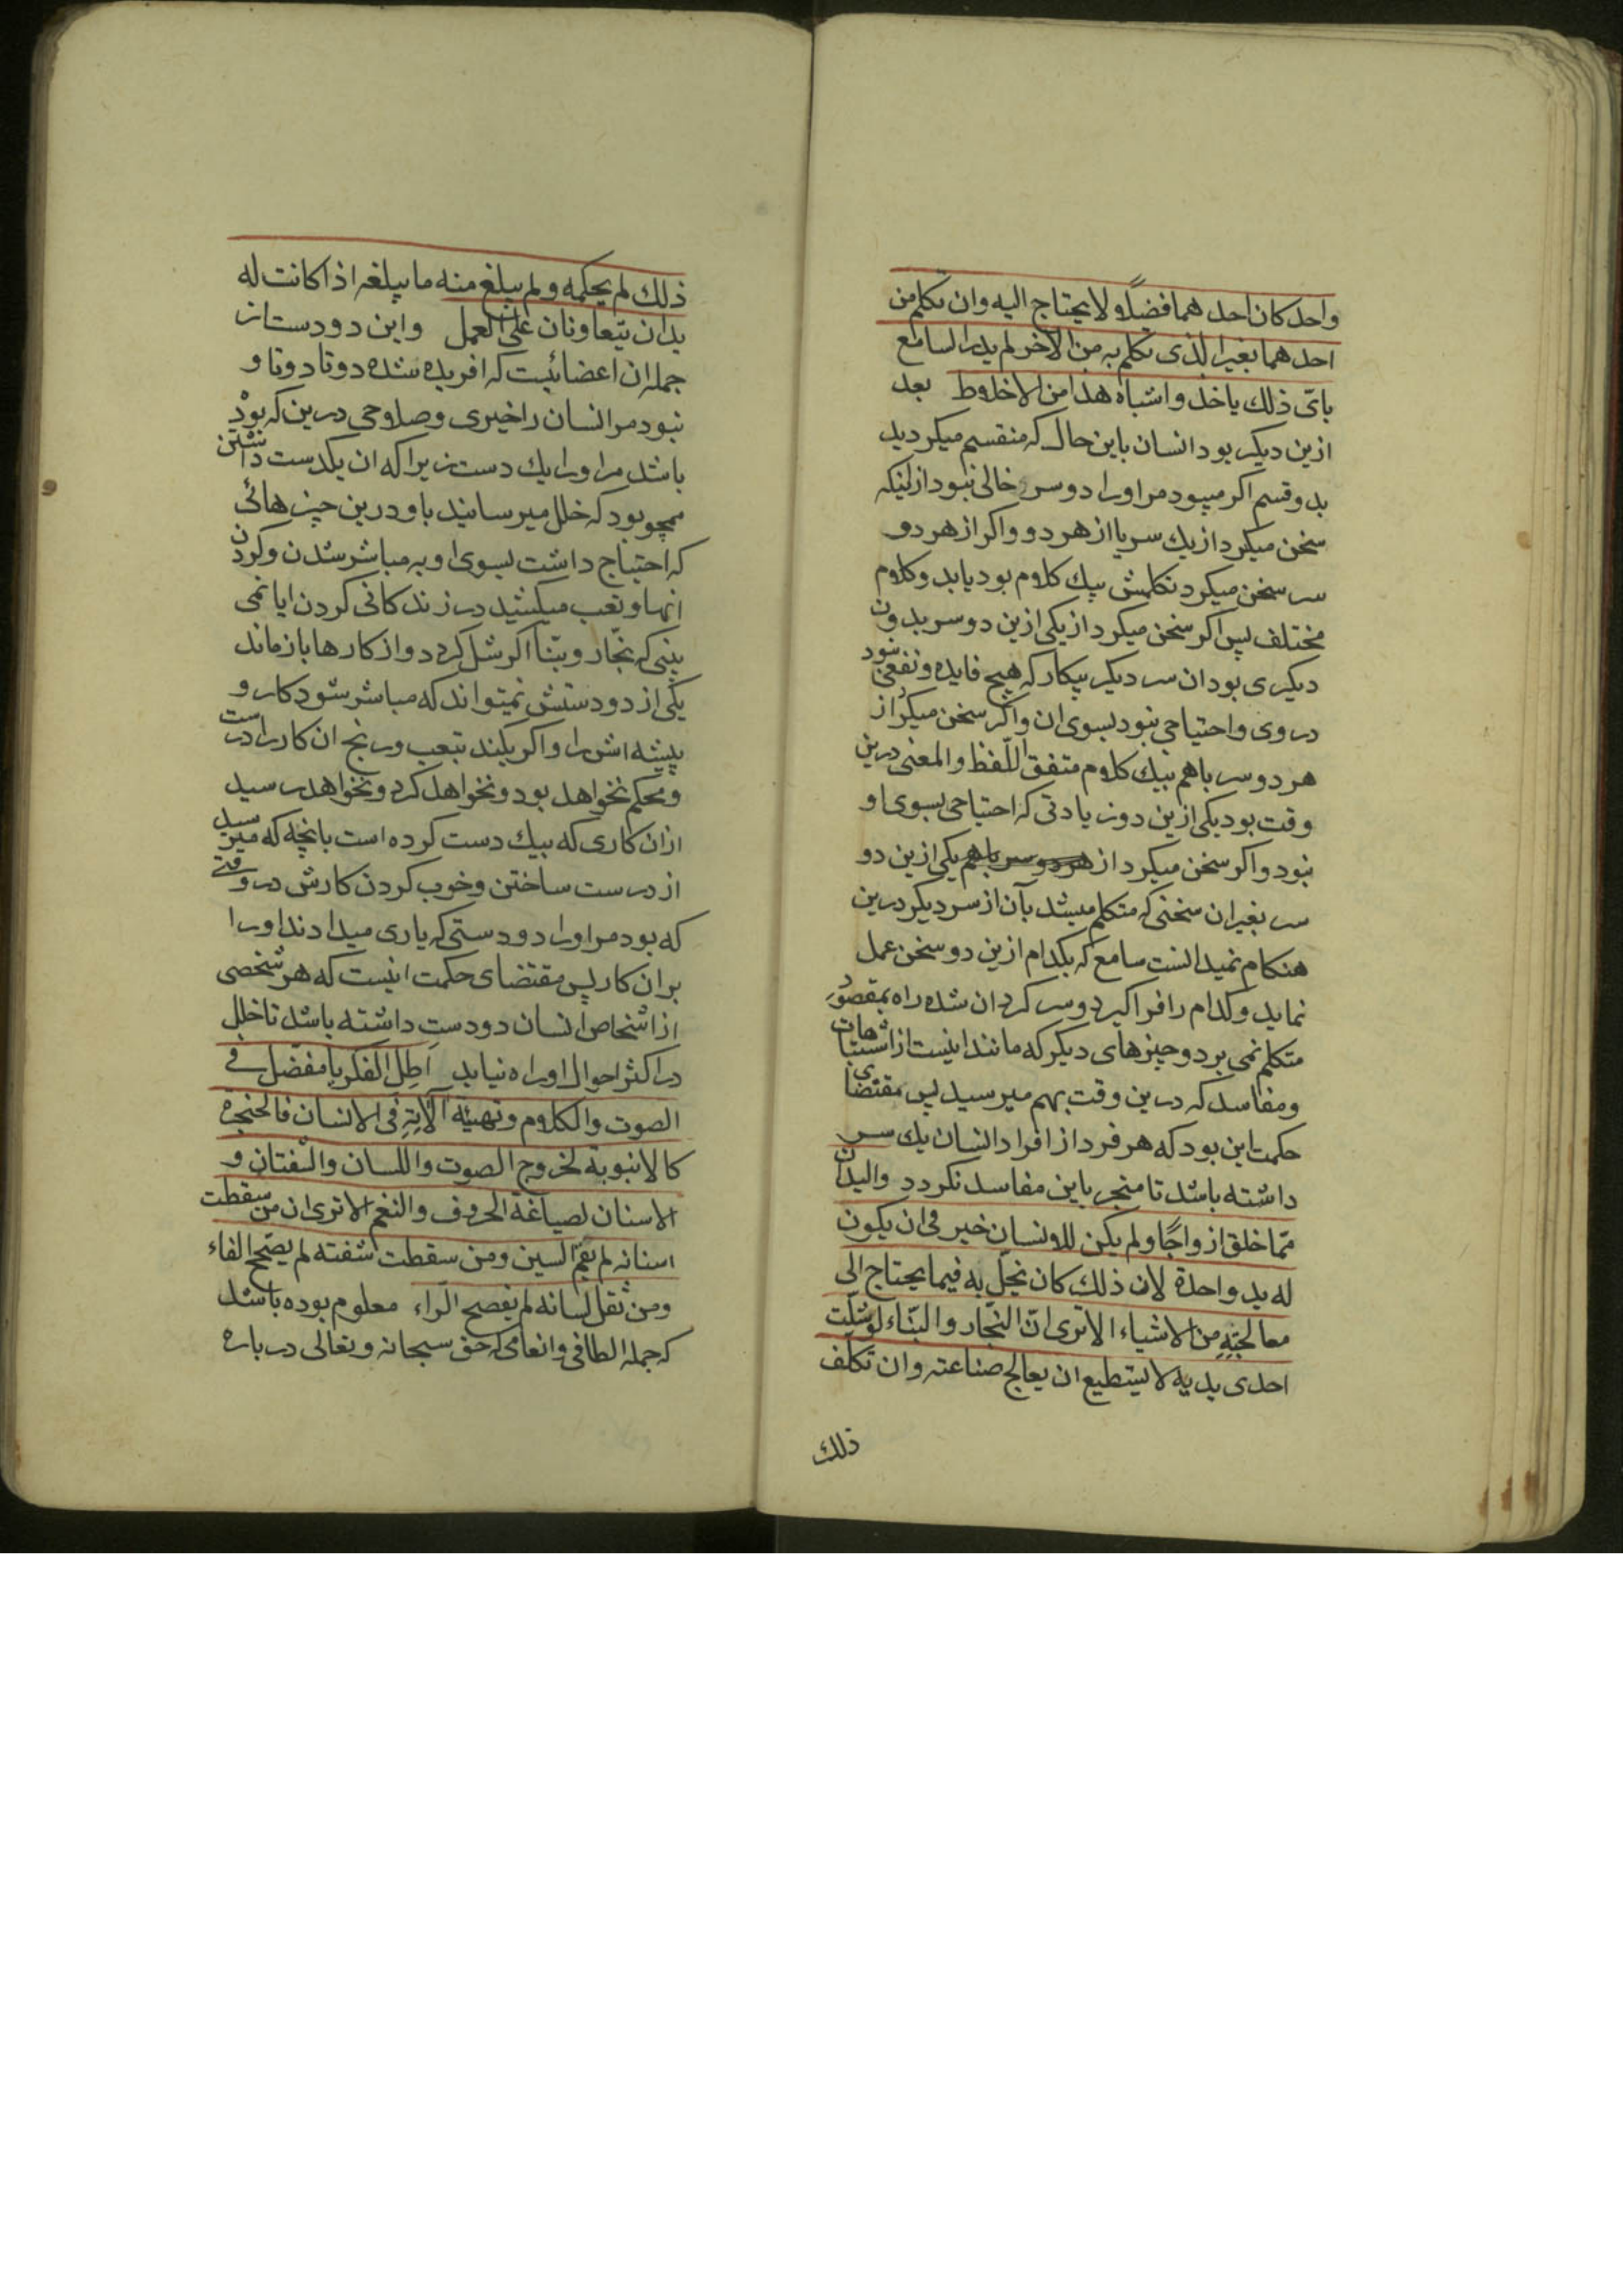 واحد كان احدهما فضلًا ولا يحتاج اليه وان تكلم من
احدهما بغير الذى تكلم به من الاخر لم يدر السامع
باىّ ذلك ياخذ واشباه هذا من الاخلاط بعد
ازين ديكر بود انسان باين حال كه منقسم ميكرديد
بدو قسم اكر ميبود مر اورا دو سر خالى نبود از اينكه
سخن ميكرد از يك سر يا از هر دو و اكر از هر دو
سر سخن ميكرد تكلمش بيك كلام بود يا بدو كلام
مختلف پس اكر سخن ميكرد از يكى ازين دو سر بدون
ديكرى بود ان سر ديكر بيكار كه هيچ فايده و نفعى نبود
در وى و احتياجى نبود بسوى ان و اكر سخن ميكرد از
هر دو سر باهم بيك كلام متفق اللّفظ والمعنى درين
وقت بود يكى ازين دو زيادتى كه احتياجى بسوى او
نبود و اكر سخن ميكرد از هر دو سر باهم يكى ازين دو
سر بغير ان سخنى كه متكلم ميشد بآن از سر ديكر درين
هنكام نميدانست سامع كه بكدام ازين دو سخن عمل
نمايد و كدام را فرا كيرد و سر كردان شده راه بمقصود
متكلم نمى برد و چيزهاى ديكر كه مانند اينست از اشتباهات
و مفاسد كه درين وقت بهم ميرسيد پس مقتضاى
حكمت اين بود كه هر فرد از افراد انسان يك سر
داشته باشد تا منجر باين مفاسد نكردد واليدان
ممّا خلق ازواجًا ولم يكن للانسان خير فى ان يكون
له يد واحدة لان ذلك كان يخلّ به فيما يحتاج الى
معالجته من الاشياء الا ترى انّ النجّار والبنّاء لو شلّت
احدى يديه لا يستطيع ان يعالج صناعته وان تكلف
ذلك
ذلك لم يحكمه ولم يبلغ منه ما يبلغه اذا كانت له
يدان يتعاونان على العمل و اين دو دست از
جمله ان اعضائيست كه افريده شده دوتا دوتا و
نبود مر انسان را خيرى و صلاحى درين كه بوده
باشد مر اورا يك دست زيرا كه ان يكدست داشتن
همچو بود كه خلل ميرسانيد باو درين چيزهائى
كه احتياج داشت بسوى او به مباشر شدن و كردن
انها و تعب ميكشيد در زندكانى كردن ايا نمى
بينى كه نجّار و بنّا اكر شل كردد و از كارها باز ماند
يكى از دو دستش نميتواند كه مباشر شود كار و
پيشه اش را و اكر بكند بتعب و رنج ان كار را درست
و محكم نخواهد بود و نخواهد كرد و نخواهد رسيد
از ان كارى كه بيك دست كرده است بانچه كه ميرسيد
از درست ساختن و خوب كردن كارش در وقتى
كه بود مر اورا دو دستى كه يارى ميدادند اورا
بر ان كار پس مقتضاى حكمت اينست كه هر شخصى
از اشخاص انسان دو دست داشته باشد تا خلل
در اكثر احوال اورا راه نيابد اطِل الفكر يا مفضّل فى
الصوت والكلام وتهيئة آلاتِهِ فى الانسان فالحنجرة
كالانبوبة لخروج الصوت واللسان والشفتان و
الاسنان لصياغة الحروف والنغم الا ترى ان من سقطت
اسنانه لم يقم السين ومن سقطت شفته لم يصحّح الفاء
ومن ثقل لسانه لم يفصح الرّاء معلوم بوده باشد
كه جمله الطافى و انعامى كه حق سبحانه و تعالى در باره